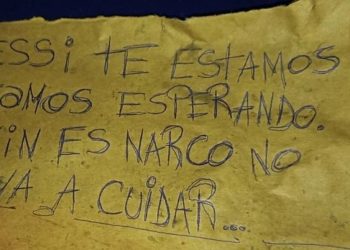 ESSI TE ESTAMOS
AMOS ESPERANDO.
IN ES NARCO NO
VA A CUIDAR...